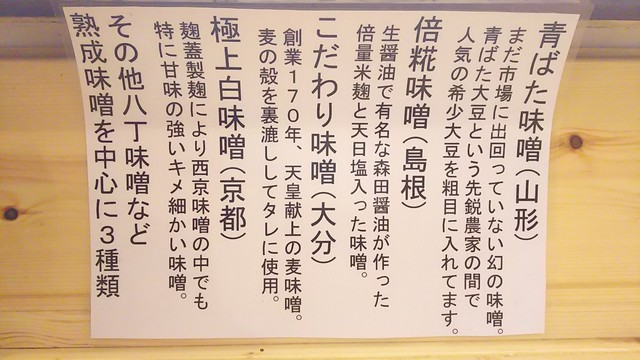 青ばた味噌(山形)
まだ市場に出回っていない幻の味噌。
青ばた大豆という先鋭農家の間で
人気の希少大豆を粗目に入れてます。
倍糀味噌(島根)
生醤油で有名な森田醤油が作った
倍量米麹と天日塩入った味噌。
こだわり味噌(大分)
創業170年、天皇献上の麦味噌。
麦の殻を裏漉ししてタレに使用。
極上白味噌(京都)
麹蓋製麹により西京味噌の中でも
特に甘味の強いキメ細かい味噌。
その他八丁味噌など
熟成味噌を中心に3種類